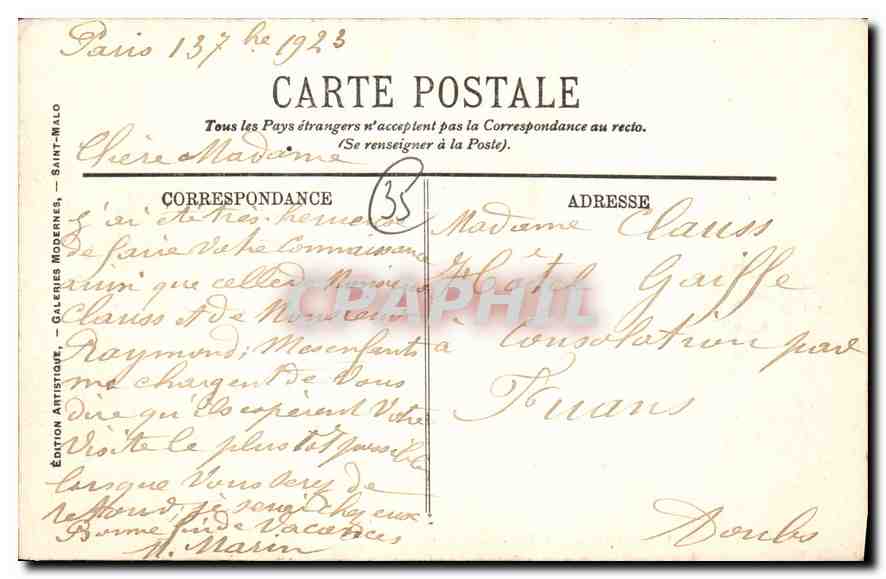 Paris 13 7bre 1923
CARTE POSTALE
Tous les Pays étrangers n'acceptent pas la Correspondance au recto.
(Se renseigner à la Poste).
Chère Madame
CORRESPONDANCE
35
j'ai été très heureuse
de faire votre connaissance
ainsi que celle de Monsieur
Clauss et de Monsieur
Raymond; Mes enfants
me chargent de vous
dire qu'ils espèrent votre
visite le plus tôt possible
lorsque vous serez de
retour, je serai chez eux
Bonne fin de vacances
M. Marin
ADRESSE
Madame Clauss
Hôtel Gaiffe
à Consolation par
Fuans
Doubs
ÉDITION ARTISTIQUE, — GALERIES MODERNES, — SAINT-MALO
CPAPHIL